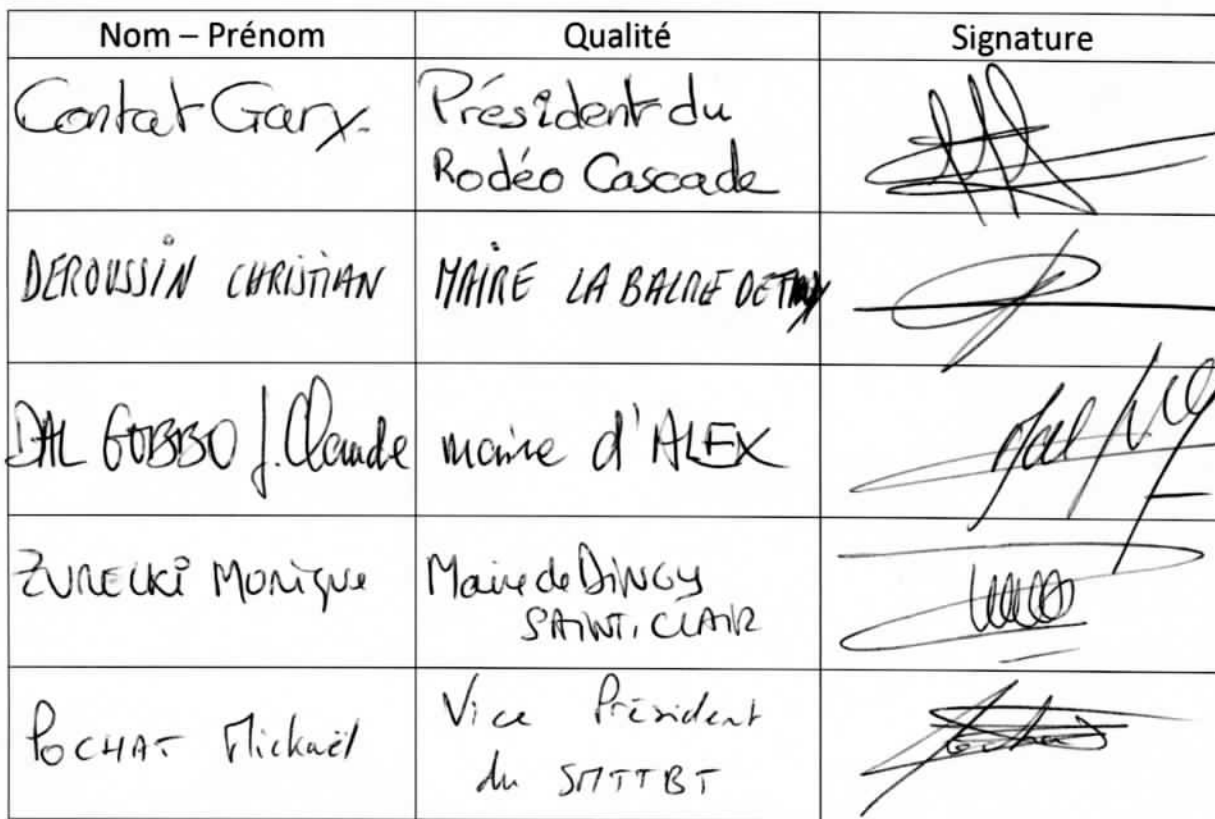 Nom – Prénom Qualité Signature
Contat Gary. Président du
Rodéo Cascade
DEROUSSIN CHRISTIAN MAIRE LA BALME DE
DAL GOBBO J. Claude maire d'ALEX
ZURECKI MONIQUE Maire de DINGY
SAINT, CLAIR
POCHAT Mickaël Vice Président
du SMTTBT